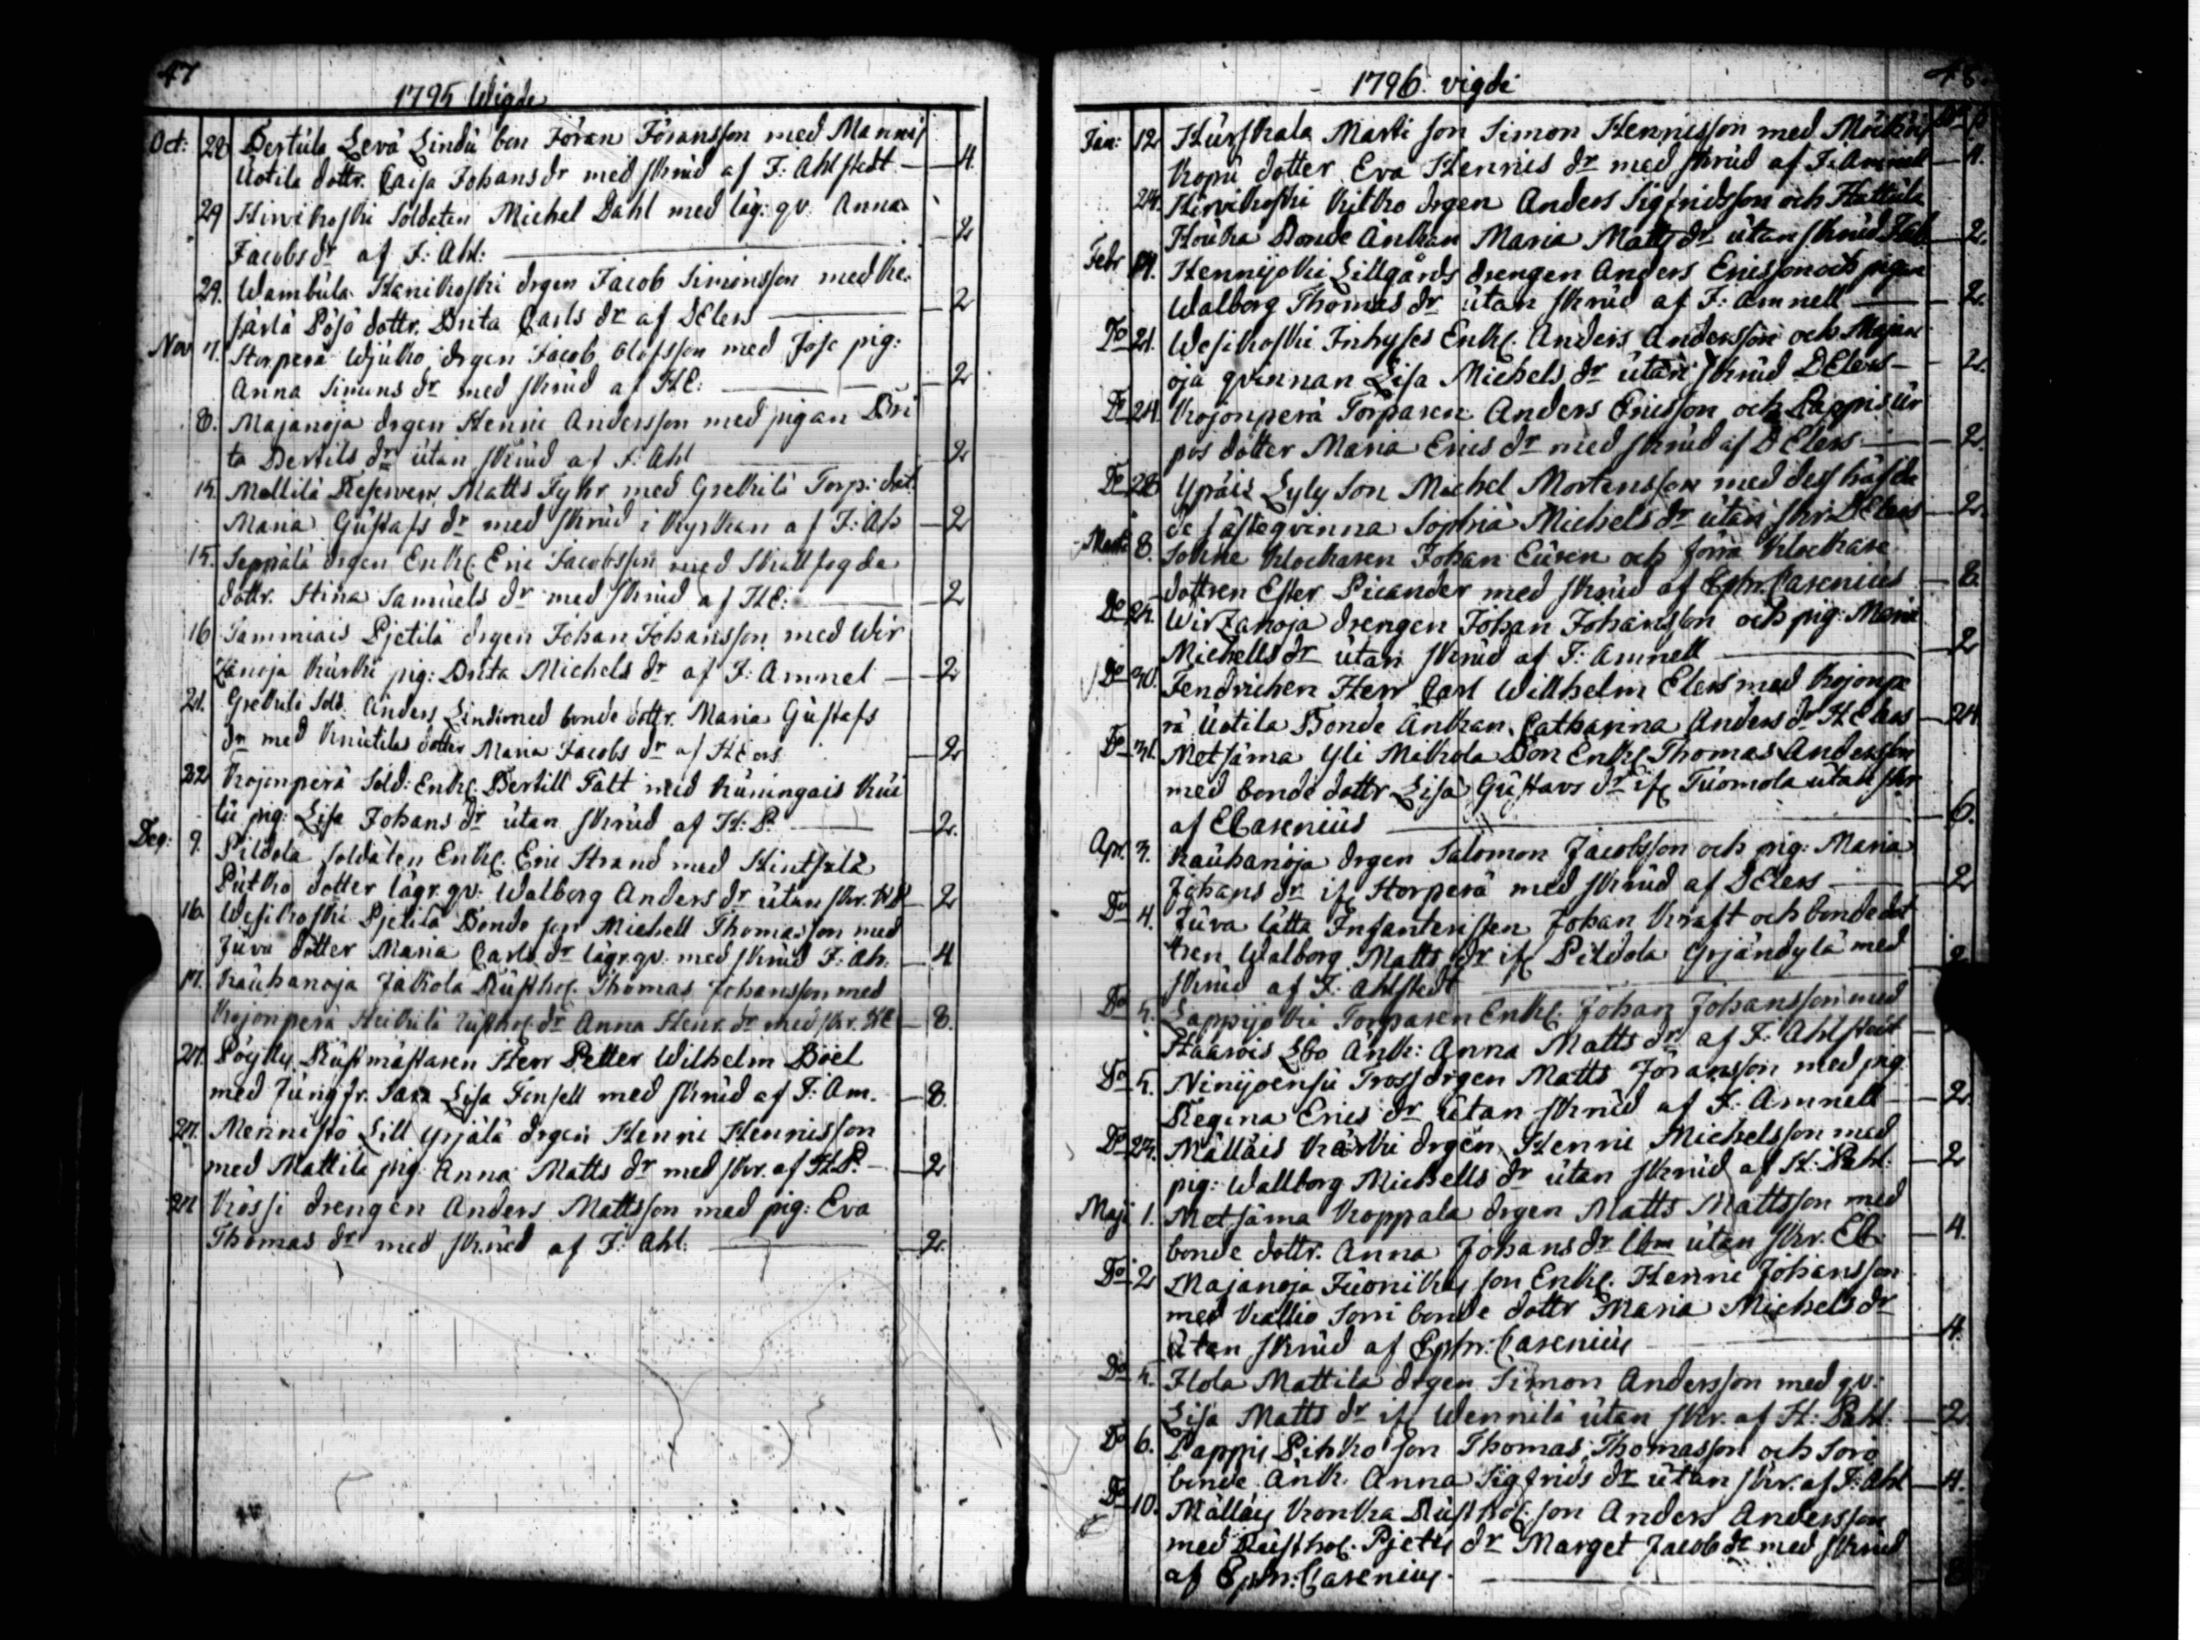 47
1795 Wigde
Oct: 28 Bertula Levä Lindu bon Jöran Jöransson med Mannis
Uotila dottr. Caisa Johans dr med skrud af F: Ahlstedt — 4.
29 Hirvikoski Soldaten Michel Dahl med läg: qv. Anna
Jacobs dr af F: Ahl: — 2
29. Wambula Kanikoski drgen Jacob Simonsson med Ke-
järlä Pösö dottr. Brita Carls dr af DElers — 2
Nov 7. Storperä Wjuko drgen Jacob Olofsson med Jose pig:
Anna Simons dr med skrud af HE: — 2
8. Majanoja drgen Henric Andersson med pigan Bri
ta Bertils dr utan skrud af F. Ahl — 2
15. Mellilä Reserven Matts Fykr med Grekilä Torp: dot.
Maria Gustafs dr med skrud i kyrkan af F: Ah — 2
15. Seppälä drgen Enkl. Eric Jacobsson med Skallfogde
dottr. Stina Samuels dr med skrud af HE: — 2
16 Tammiais Pjetilä drgen Johan Johansson med Wir
zanoja Kurki pig: Brita Michels dr af F: Amnel — 2
21. Grekulä Sold. Anders Lind med bonde dottr. Maria Gustafs
dr med Knutilas dotter Maria Jacobs dr af HElers — 2
22 Kojonperä Sold: Enkl. Bertill Fält med Kuningais Kui
tu pig: Lisa Johans dr utan skrud af H: P. — 2.
Dec: 9. Pildola soldaten Enkl. Eric Strand med Hintsala
Putko dotter lägr. qv: Walborg Anders dr utan skr. HP — 2
16. Wesikoski Pjetilä Bonde son Michell Thomasson med
Juva dotter Maria Carls dr lägr. qv. med skrud F: Ah. — 4
17. Rauhanoja Jakola Rusthol. Thomas Johansson med
Kojonperä Heikilä rusthol. dr Anna Henr. dr med skr. HE — 8.
27. Pöytty Rustmästaren Herr Petter Wilhelm Boel
med Jungfr. Sara Lisa Fonsell med skrud af F: Am. — 8.
27. Mennistö Lill Yrjälä drgen Henric Henricsson
med Mattila pig Anna Matts dr med skr. af H:P. — 2
27 Krössi drengen Anders Mattsson med pig: Eva
Thomas dr med skrud af F: Ahl: — 2.
1796 vigde
Jan: 12 Hurskala Marti son Simon Henricsson med
Kopu dotter Eva Henrics dr med skrud af F: Amnell — 4.
24. Hirvikoski Kitko drgen Anders Sigfridsson och Hattula
Houka Bonde Änkan Maria Matts dr utan skrud — 2.
Febr. 14. Hennijoki Lillgårds drengen Anders Ericsson och pigan
Walborg Thomas dr utan skrud af F: Amnell — 2.
Do 21. Wesikoski Inhyses Enkl. Anders Andersson och Majan
oja qvinnan Lisa Michels dr utan skrud DElers — 2.
Do 24. Kojonperä Torparen Anders Ericsson och Lappis
pos dotter Maria Erics dr med skrud af DElers — 2.
Do 28 Ypäis Lyly Son Michel Mortensson med des häfda
de fästeqvinna Sophia Michels dr utan skr. DElers — 2.
Mart: 8. Klockaren Johan Euren och förra Klockare
dottren Ester Picander med skrud af Ephr. Carenius — 8.
Do Wirzanoja drengen Johan Johansson och pig: Maria
Michells dr utan skrud af F: Amnell — 2
Do 30. Fendrichen Herr Carl Willhelm Elers med Kojonpe
rä Uotila Bonde Änkan Catharina Anders dr HElers — 24.
Do 31. Metsäma Yli Mikola Bon Enkl Thomas Andersson
med bonde dottr Lisa Gustavs dr if: Tuomola utan skr
af ECarenius — 6.
Apr. 3. Rauhanoja drgen Salomon Jacobsson och pig: Maria
Johans dr if: Storperä med skrud af DElers — 2
Do 4. Juva lätta Infanteristen Johan Kraft och bonde dot
tren Walborg Matts dr if: Pildola Yrjändylä med
skrud af F: Ahlstedt — 2
Do 5. Lappijoki Torparen Enkl. Johan Johansson med
Haarois Änk: Anna Matts dr af F: Ahlstedt
Do 5. Ninijoensu Trossdrgen Matts Jöransson med pig
Regina Erics dr utan skrud af F. Amnell — 2.
Do Mälläis Kärki drgen Henric Michelsson med
pig: Wallborg Michells dr utan skrud af H: Pahl: — 2
Maji 1. Metsäma Koppala drgen Matts Mattsson med
bonde dottr. Anna Johans dr ibm utan skr. EC — 4.
Do 2 Majanoja Juonikas son Enkl. Henric Johansson
med Kallio Sorri bonde dottr Maria Michels dr
utan skrud af Ephr. Carenius — 4.
Do 5. Hola Mattila drgen Simon Andersson med qv:
Lisa Matts dr if: Wennilä utan skr. af H: Pahl. — 2.
Do 6. Lappis Pihko son Thomas Thomasson och Soro
bonde Änk. Anna Sigfrids dr utan skr. af F: Ahl — 4.
Do 10. Mälläis Kronka Rusthol: son Anders Andersson
med Rusthol. Pjetis dr Marget Jacobs dr med skrud
af Ephr: Carenius.